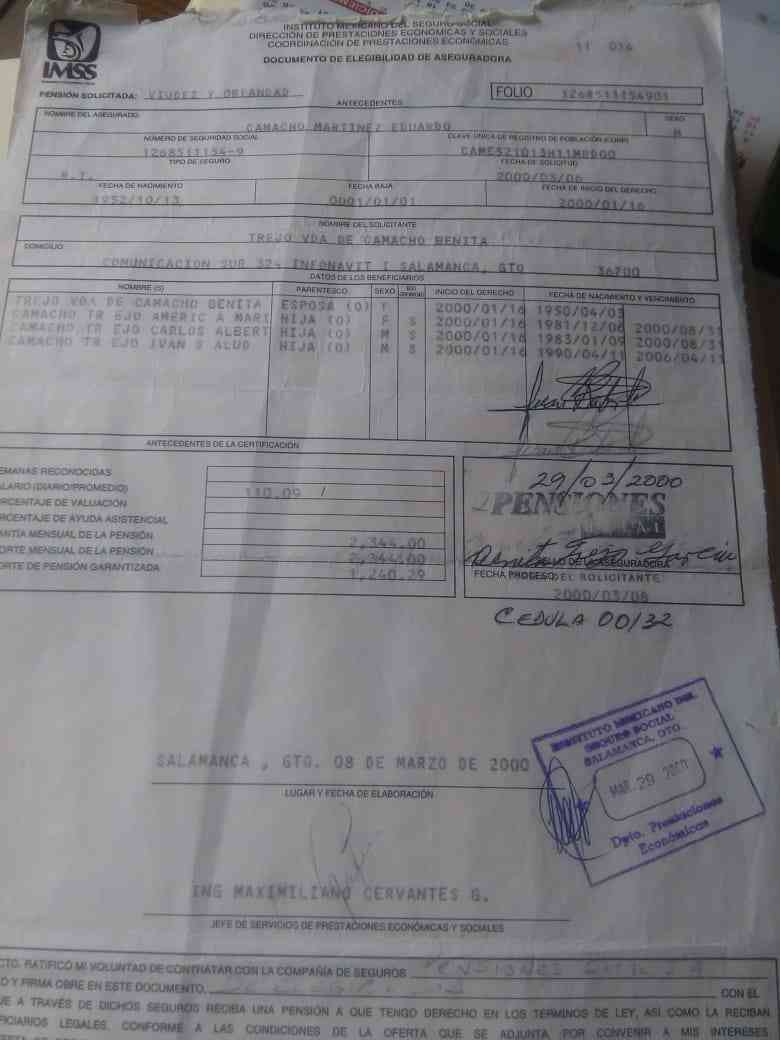 INSTITUTO MEXICANO DEL SEGURO SOCIAL
DIRECCIÓN DE PRESTACIONES ECONÓMICAS Y SOCIALES
COORDINACIÓN DE PRESTACIONES ECONÓMICAS
DOCUMENTO DE ELEGIBILIDAD DE ASEGURADORA
IMSS
PENSIÓN SOLICITADA: VIUDEZ Y ORFANDAD
FOLIO
ANTECEDENTES
NOMBRE DEL ASEGURADO: SEXO
CAMACHO MARTINEZ EDUARDO M
NÚMERO DE SEGURIDAD SOCIAL CLAVE ÚNICA DE REGISTRO DE POBLACIÓN (CURP)
1268511154-9
TIPO DE SEGURO FECHA DE SOLICITUD
2000/03/06
FECHA DE NACIMIENTO FECHA BAJA FECHA DE INICIO DEL DERECHO
1952/10/13 0001/01/01 2000/01/16
NOMBRE DEL SOLICITANTE
TREJO VDA DE CAMACHO BENITA
DOMICILIO:
COMUNICACION SUR INFONAVIT I SALAMANCA, GTO 36700
DATOS DE LOS BENEFICIARIOS
NOMBRE (S) PARENTESCO SEXO INICIO DEL DERECHO FECHA DE NACIMIENTO Y VENCIMIENTO
TREJO VDA DE CAMACHO BENITA ESPOSA (O) F 2000/01/16 1950/04/03
CAMACHO TR EJO AMERIC A MARI HIJA (O) F S 2000/01/16 1981/12/06 2000/08/31
CAMACHO TR EJO CARLOS ALBERT HIJA (O) M S 2000/01/16 1983/01/09 2000/08/31
CAMACHO TR EJO IVAN S ALUD HIJA (O) M S 2000/01/16 1990/04/11 2006/04/11
ANTECEDENTES DE LA CERTIFICACIÓN
EMANAS RECONOCIDAS
ALARIO (DIARIO/PROMEDIO) 110.09 /
ORCENTAJE DE VALUACIÓN
ORCENTAJE DE AYUDA ASISTENCIAL
ANTÍA MENSUAL DE LA PENSIÓN 2,344.00
ORTE MENSUAL DE LA PENSIÓN 2,344.00
ORTE DE PENSIÓN GARANTIZADA 1,240.29
29/03/2000
PENSIONES
Benita Trejo Garcia
DE LA ASEGURADORA
FECHA PROCESO DEL SOLICITANTE
2000/03/08
CEDULA 00/32
INSTITUTO MEXICANO DEL
SEGURO SOCIAL
SALAMANCA, GTO.
MAR. 29 2000
Dpto. Prestaciones
Económicas
SALAMANCA , GTO. 08 DE MARZO DE 2000
LUGAR Y FECHA DE ELABORACIÓN
ING MAXIMILIANO CERVANTES G.
JEFE DE SERVICIOS DE PRESTACIONES ECONÓMICAS Y SOCIALES
CTO, RATIFICO MI VOLUNTAD DE CONTRATAR CON LA COMPAÑÍA DE SEGUROS
O Y FIRMA OBRE EN ESTE DOCUMENTO, CON EL
UE A TRAVÉS DE DICHOS SEGUROS RECIBA UNA PENSIÓN A QUE TENGO DERECHO EN LOS TERMINOS DE LEY, ASÍ COMO LA RECIBAN
FICIARIOS LEGALES, CONFORME A LAS CONDICIONES DE LA OFERTA QUE SE ADJUNTA, POR CONVENIR A MIS INTERESES